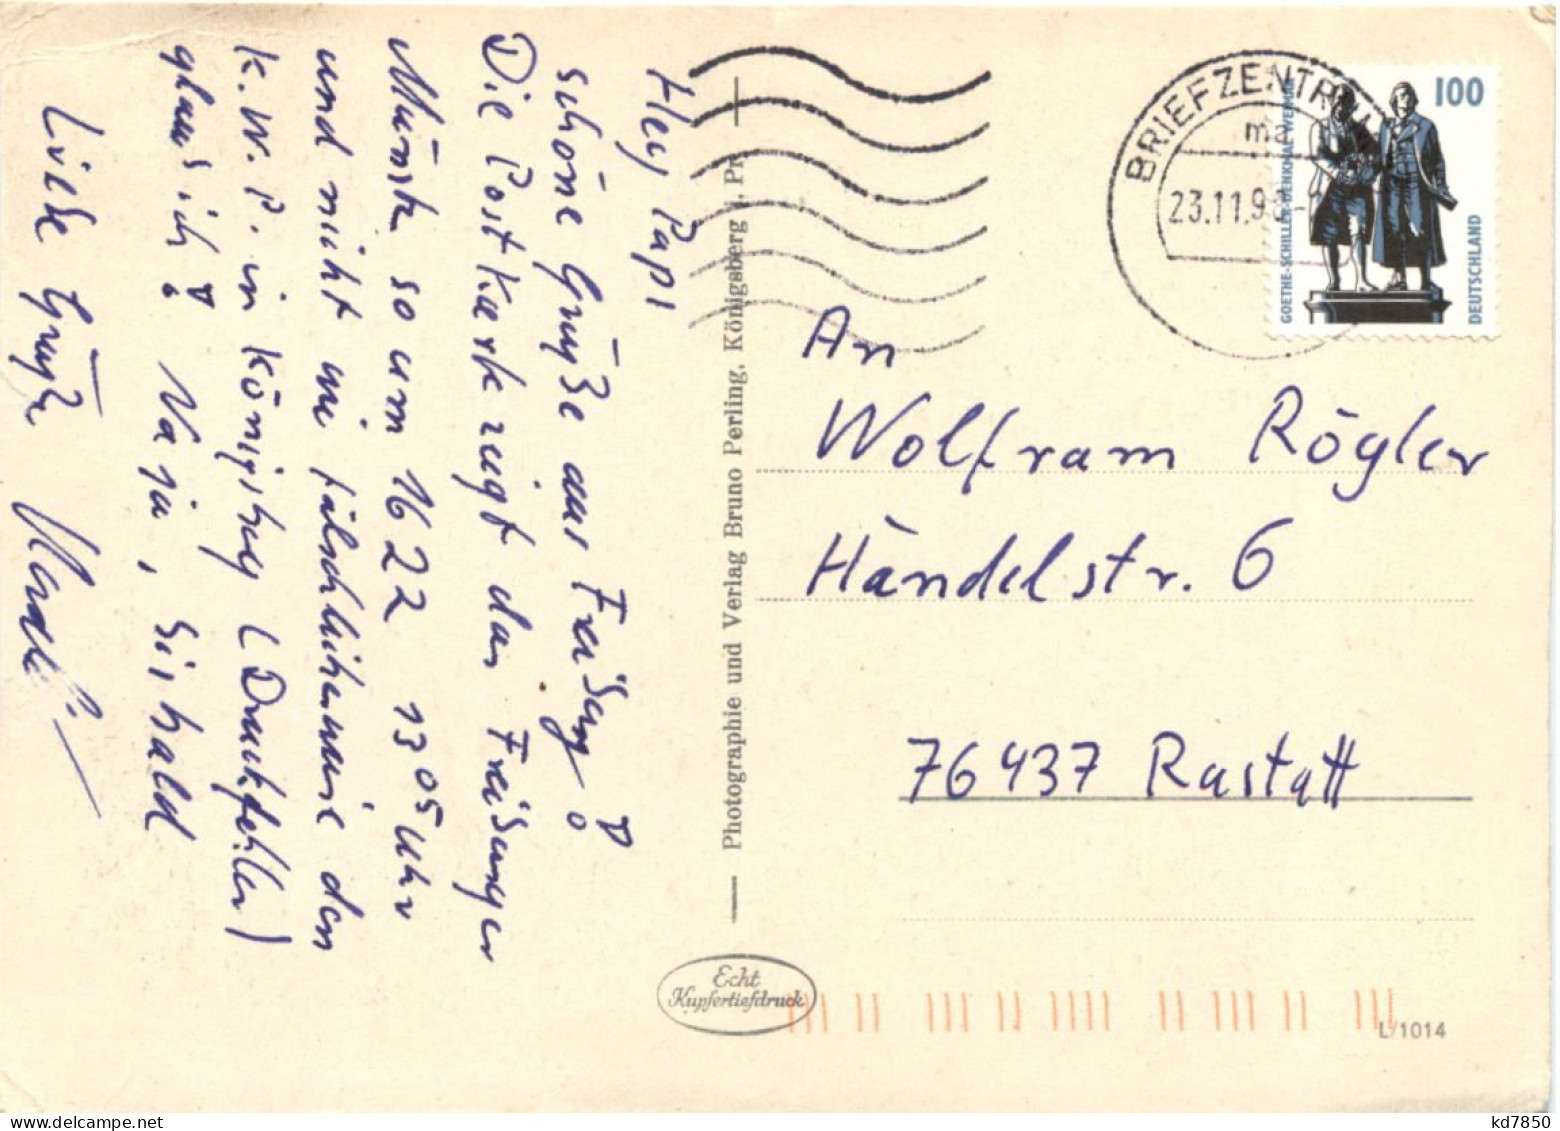 Hey Papi
schöne Grüße aus Freising!
Die Postkarte zeigt das Freisinger
so um 1622 13 05 Uhr
und nicht wie fälschlicherweise den
K.W.P. in Königsberg (Druckfehler)
glaub ich! Na ja, bis bald
Liebe Grüße
Photographie und Verlag Bruno Perling, Königsberg i. Pr.
Echt
Kupfertiefdruck
BRIEFZENTRUM
23.11.9
100
GOETHE-SCHILLER-DENKMAL WEIMAR
DEUTSCHLAND
An
Wolfram Rögler
Händelstr. 6
76437 Rastatt
L/1014
kd7850